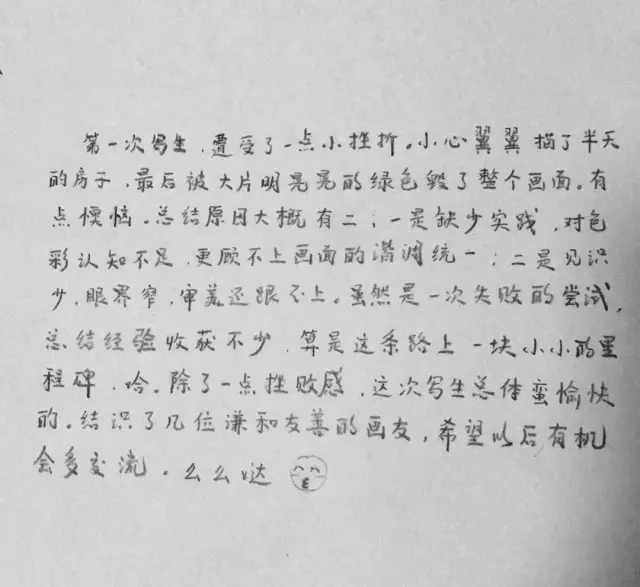 第一次写生，遭受了一点小挫折。小心翼翼描了半天
的房子，最后被大片明晃晃的绿色毁了整个画面。有
点懊恼。总结原因大概有二；一是缺少实践，对色
彩认知不足，更顾不上画面的谐调统一；二是见识
少，眼界窄，审美还跟不上。虽然是一次失败的尝试，
总结经验收获不少，算是这条路上一块小小的里
程碑，哈。除了一点挫败感，这次写生总体蛮愉快
的。结识了几位谦和友善的画友，希望以后有机
会多交流。么么哒